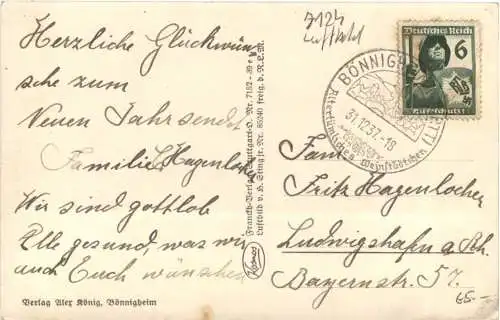 Herzliche Glückwün
sche zum
Neuen Jahr sendet
Familie Hagenlocher
Wir sind gottlob
Alle gesund, was wir
auch Euch wünschen
Verlag Alex König, Bönnigheim
Franckh-Verlag Stuttgart-O. Nr. 7182
Luftbild v. H. Sting jr. Nr. 85540 freig. d. R.L.M.
Kosmos
7124
Luftbild
BÖNNIGHEIM
(WÜRTT)
31.12.37.-18
Altertümliches Weinstädtchen
Deutsches Reich
6
Luftschutz
Fam.
Fritz Hagenlocher
Ludwigshafen a. Rh.
Bayernstr. 57.
65.-